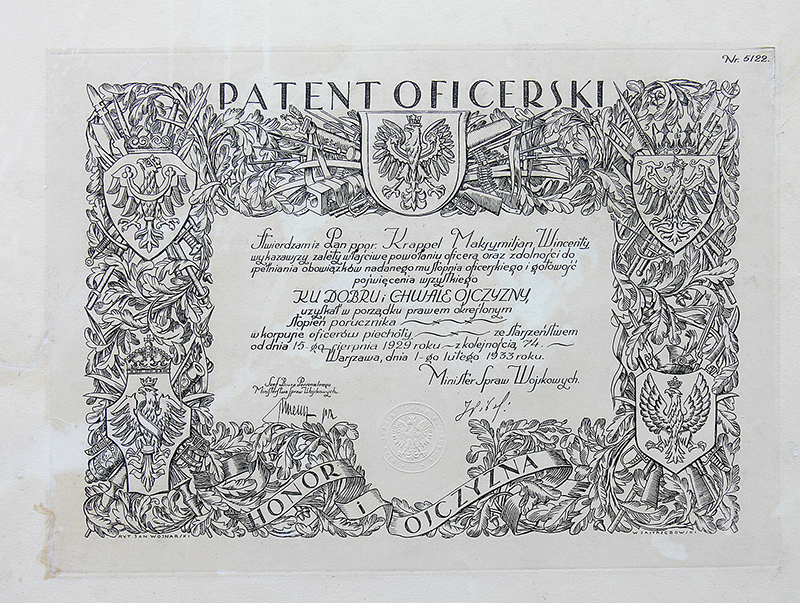 Nr. 5122.
PATENT OFICERSKI
Stwierdzam iż Pan ppor. Krappel Maksymiljan Wincenty
wykazawszy zalety właściwe powołaniu oficera oraz zdolności do
pełniania obowiązków nadanego mu stopnia oficerskiego i gotowość
poświęcenia wszystkiego
KU DOBRU i CHWALE OJCZYZNY,
uzyskał w porządku prawem określonym
stopień porucznika
w korpusie oficerów piechoty ze starszeństwem
od dnia 15-go sierpnia 1929 roku – z kolejnością 74.
Warszawa, dnia 1-go lutego 1933 roku.
Szef Biura Personalnego
Ministerstwa Spraw Wojskowych.
Minister Spraw Wojskowych.
HONOR i OJCZYZNA
RYT. JAN WOJNARSKI
W. JASTRZĘBOWSKI